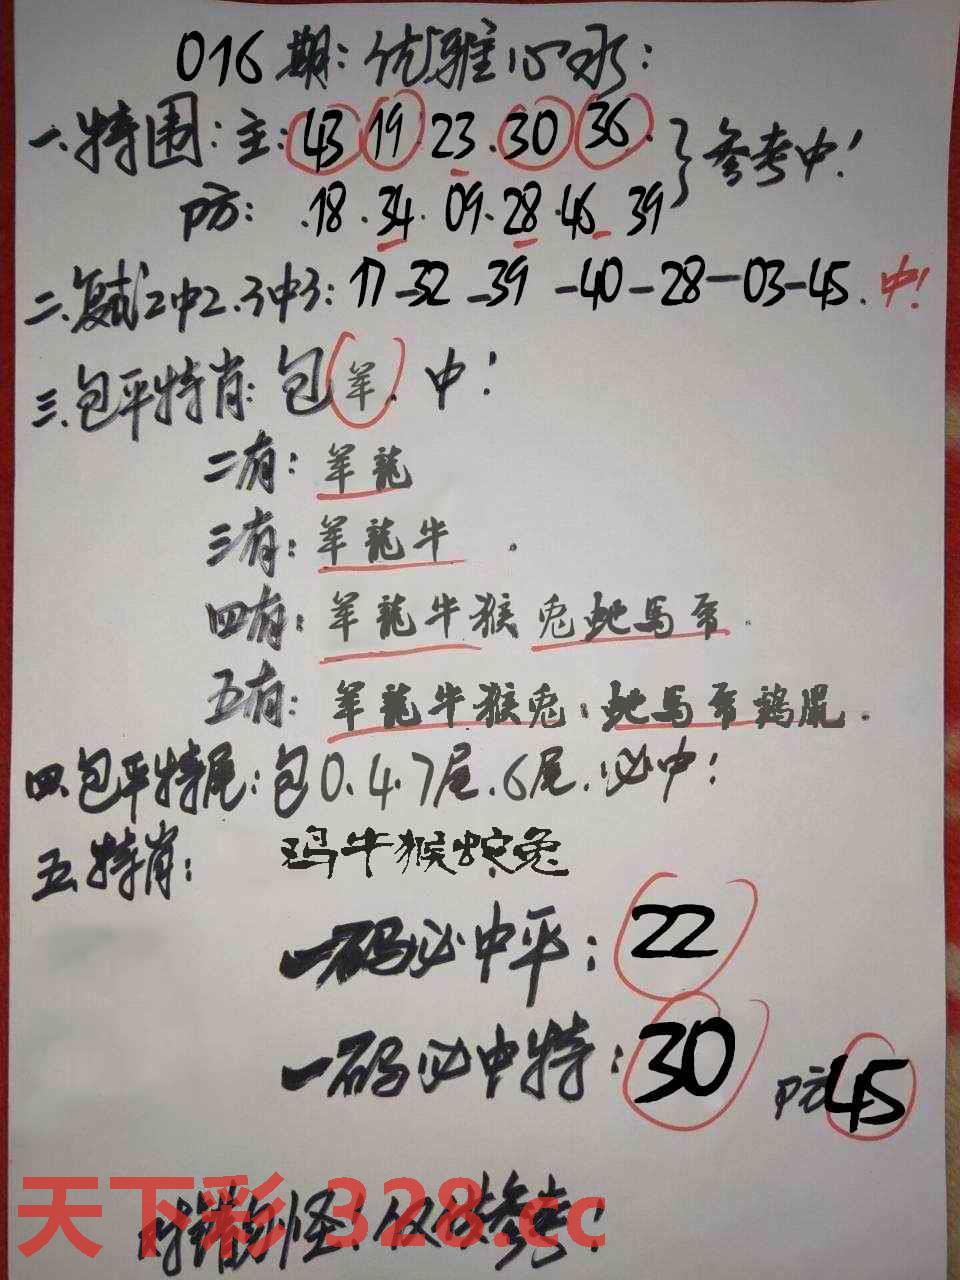 016期:优雅心水:
一.特围:主:43 19 23.30 36. }参考中!
防: .18.34.09.28.46 39
二.复式2中2.3中3:17-32-39-40-28-03-45.中!
三.包平特肖:包羊.中!
二有:羊龍
三有:羊龍牛.
四有:羊龍牛猴 兎虵馬帍.
五有:羊龍牛猴兎:虵馬帍鶏鼠.
四.包平特尾:包0.4.7尾.6尾.必中!
五.特肖:鸡牛猴蛇兔
一码必中平:22
一码必中特:30 防45
对错勿怪!仅供参考!
天下彩 328.cc